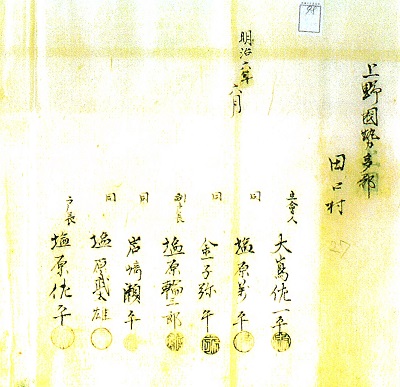 上野國勢多郡
田口村
27
明治六年六月
立會人 大嶌佐一平
同 塩原萬平
同 金子弥平
副戸長 塩原輪三郎
同 岩﨑瀬平
同 塩原 雄
戸長 塩原佐平